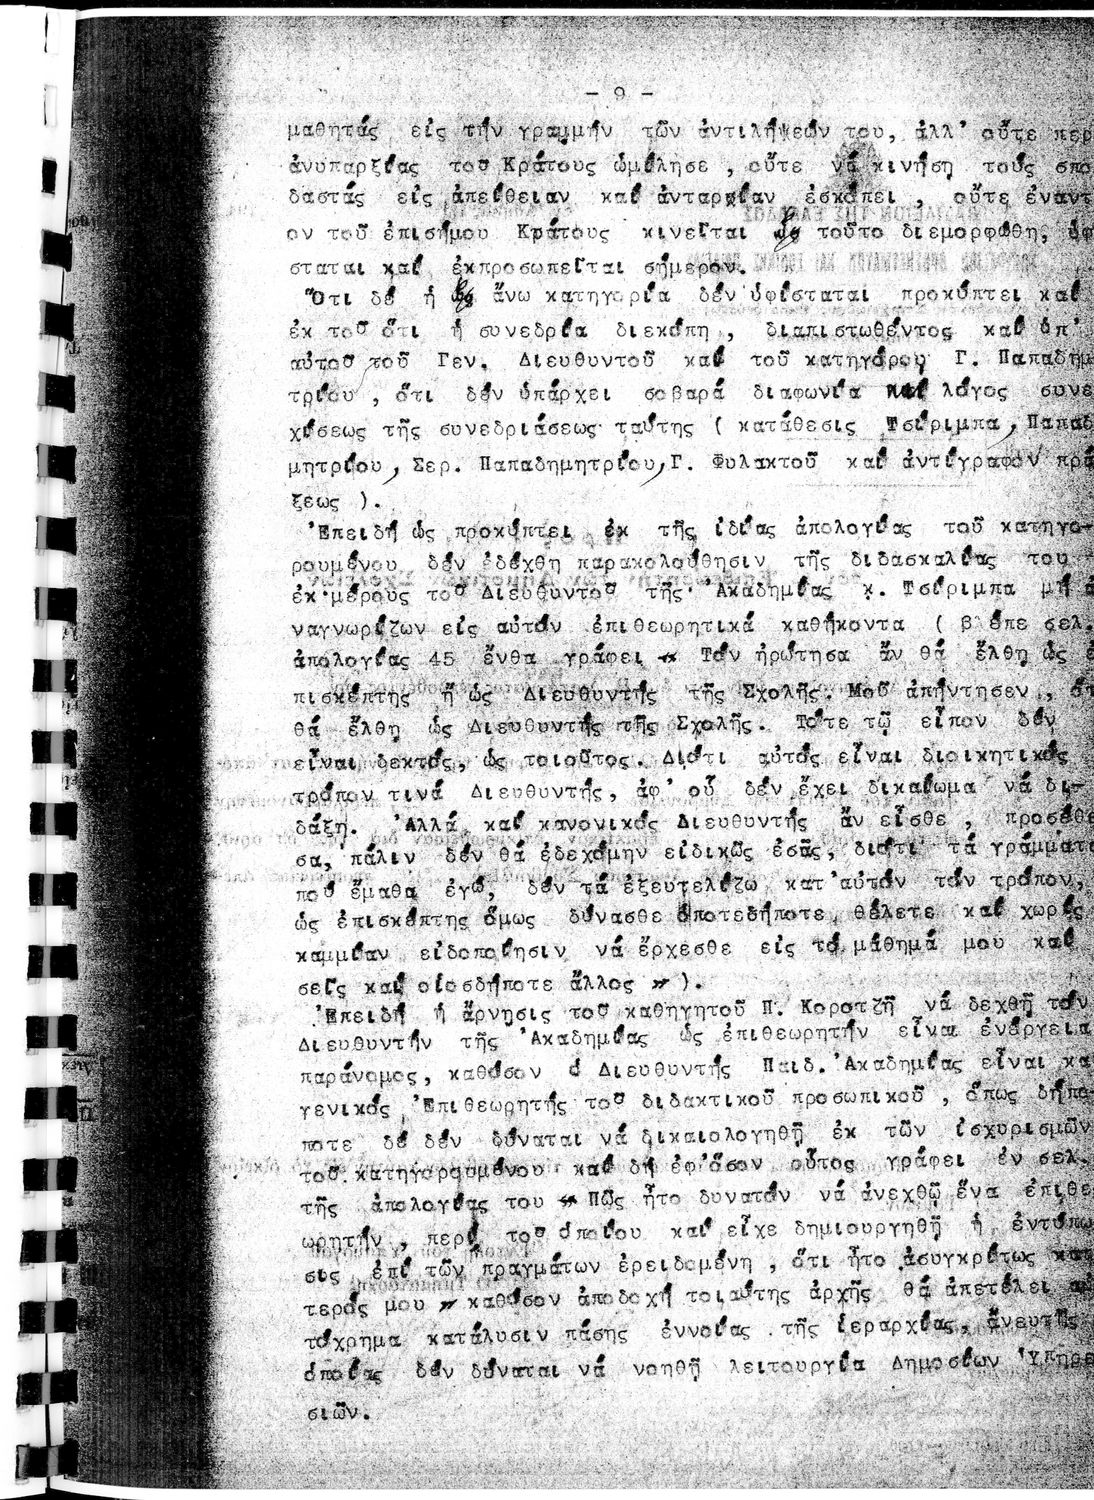 - 9 -
μαθητάς εἰς τήν γραμμήν τῶν ἀντιλήψεών του, ἀλλ' οὔτε περ
ἀνυπαρξίας τοῦ Κράτους ὡμίλησε , οὔτε νά κινήση τούς σπο
δαστάς εἰς ἀπείθειαν καί ἀνταρσίαν ἐσκόπει , οὔτε ἐναντ
ον τοῦ ἐπισήμου Κράτους κινεῖται ὡς τοῦτο διεμορφώθη, ὑφ
σταται καί ἐκπροσωπεῖται σήμερον.
Ὅτι δέ ἡ ὡς ἄνω κατηγορία δέν ὑφίσταται προκύπτει καί
ἐκ τοῦ ὅτι ἡ συνεδρία διεκόπη , διαπιστωθέντος καί ὑπ'
αὐτοῦ τοῦ Γεν. Διευθυντοῦ καί τοῦ κατηγόρου Γ. Παπαδημ
τρίου , ὅτι δέν ὑπάρχει σοβαρά διαφωνία καί λόγος συνε
χίσεως τῆς συνεδριάσεως ταύτης ( κατάθεσις Τσίριμπα, Παπαδ
μητρίου, Σερ. Παπαδημητρίου, Γ. Φυλακτοῦ καί ἀντίγραφον πρά
ξεως ).
Ἐπειδή ὡς προκύπτει ἐκ τῆς ἰδίας ἀπολογίας τοῦ κατηγο-
ρουμένου δέν ἐδέχθη παρακολούθησιν τῆς διδασκαλίας του
ἐκ μέρους τοῦ Διευθυντοῦ τῆς Ἀκαδημίας κ. Τσίριμπα μή ἀ
ναγνωρίζων εἰς αὐτόν ἐπιθεωρητικά καθήκοντα ( βλέπε σελ.
ἀπολογίας 45 ἔνθα γράφει " Τόν ἠρώτησα ἄν θά ἔλθῃ ὡς ἐ
πισκέπτης ἤ ὡς Διευθυντής τῆς Σχολῆς. Μοῦ ἀπήντησεν , ὅτ
θά ἔλθῃ ὡς Διευθυντής τῆς Σχολῆς. Τότε τῷ εἶπον δέν
εἶναι δεκτός, ὡς τοιοῦτος. Διότι αὐτός εἶναι διοικητικός
τρόπον τινά Διευθυντής, ἀφ' οὗ δέν ἔχει δικαίωμα νά δι-
δάξῃ. Ἀλλά καί κανονικός Διευθυντής ἄν εἶσθε , προσέθε
σα, πάλιν δέν θά ἐδεχόμην εἰδικῶς ἐσᾶς, διότι τά γράμματα
πού ἔμαθα ἐγώ, δέν τά ἐξευτελίζω κατ'αὐτόν τόν τρόπον,
ὡς ἐπισκέπτης ὅμως δύνασθε ὁποτεδήποτε θέλετε καί χωρίς
καμμίαν εἰδοποίησιν νά ἔρχεσθε εἰς τό μάθημά μου καί
σεῖς καί οἱοσδήποτε ἄλλος " ).
Ἐπειδή ἡ ἄρνησις τοῦ καθηγητοῦ Π. Κοροτζῆ νά δεχθῇ τόν
Διευθυντήν τῆς Ἀκαδημίας ὡς ἐπιθεωρητήν εἶναι ἐνέργεια
παράνομος, καθόσον ὁ Διευθυντής Παιδ. Ἀκαδημίας εἶναι κα
γενικός Ἐπιθεωρητής τοῦ διδακτικοῦ προσωπικοῦ , ὅπως δήπο
ποτε δέ δέν δύναται νά δικαιολογηθῇ ἐκ τῶν ἰσχυρισμῶν
τοῦ κατηγορουμένου καί δή ἐφ'ὅσον οὗτος γράφει ἐν σελ.
τῆς ἀπολογίας του " Πῶς ἦτο δυνατόν νά ἀνεχθῶ ἕνα ἐπιθε
ωρητήν , περί τοῦ ὁποίου καί εἶχε δημιουργηθῆ ἡ ἐντύπω
σις ἐπί τῶν πραγμάτων ἐρειδομένη , ὅτι ἦτο ἀσυγκρίτως κατ
τερός μου " καθόσον ἀποδοχή τοιαύτης ἀρχῆς θά ἀπετέλει αὐ
τόχρημα κατάλυσιν πάσης ἐννοίας τῆς ἱεραρχίας, ἄνευ τῆς
ὁποίας δέν δύναται νά νοηθῇ λειτουργία Δημοσίων Ὑπηρε
σιῶν.